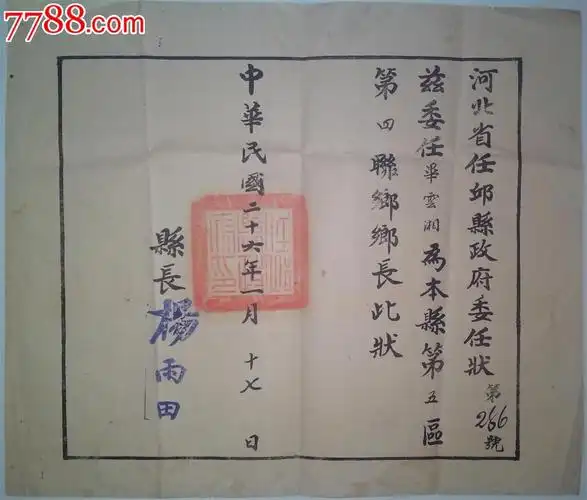 7788.com
河北省任邱縣政府委任狀 第266號
茲委任畢雲湘為本縣第五區
第四聯鄉鄉長此狀
中華民國二十六年一月十七日
縣長楊雨田